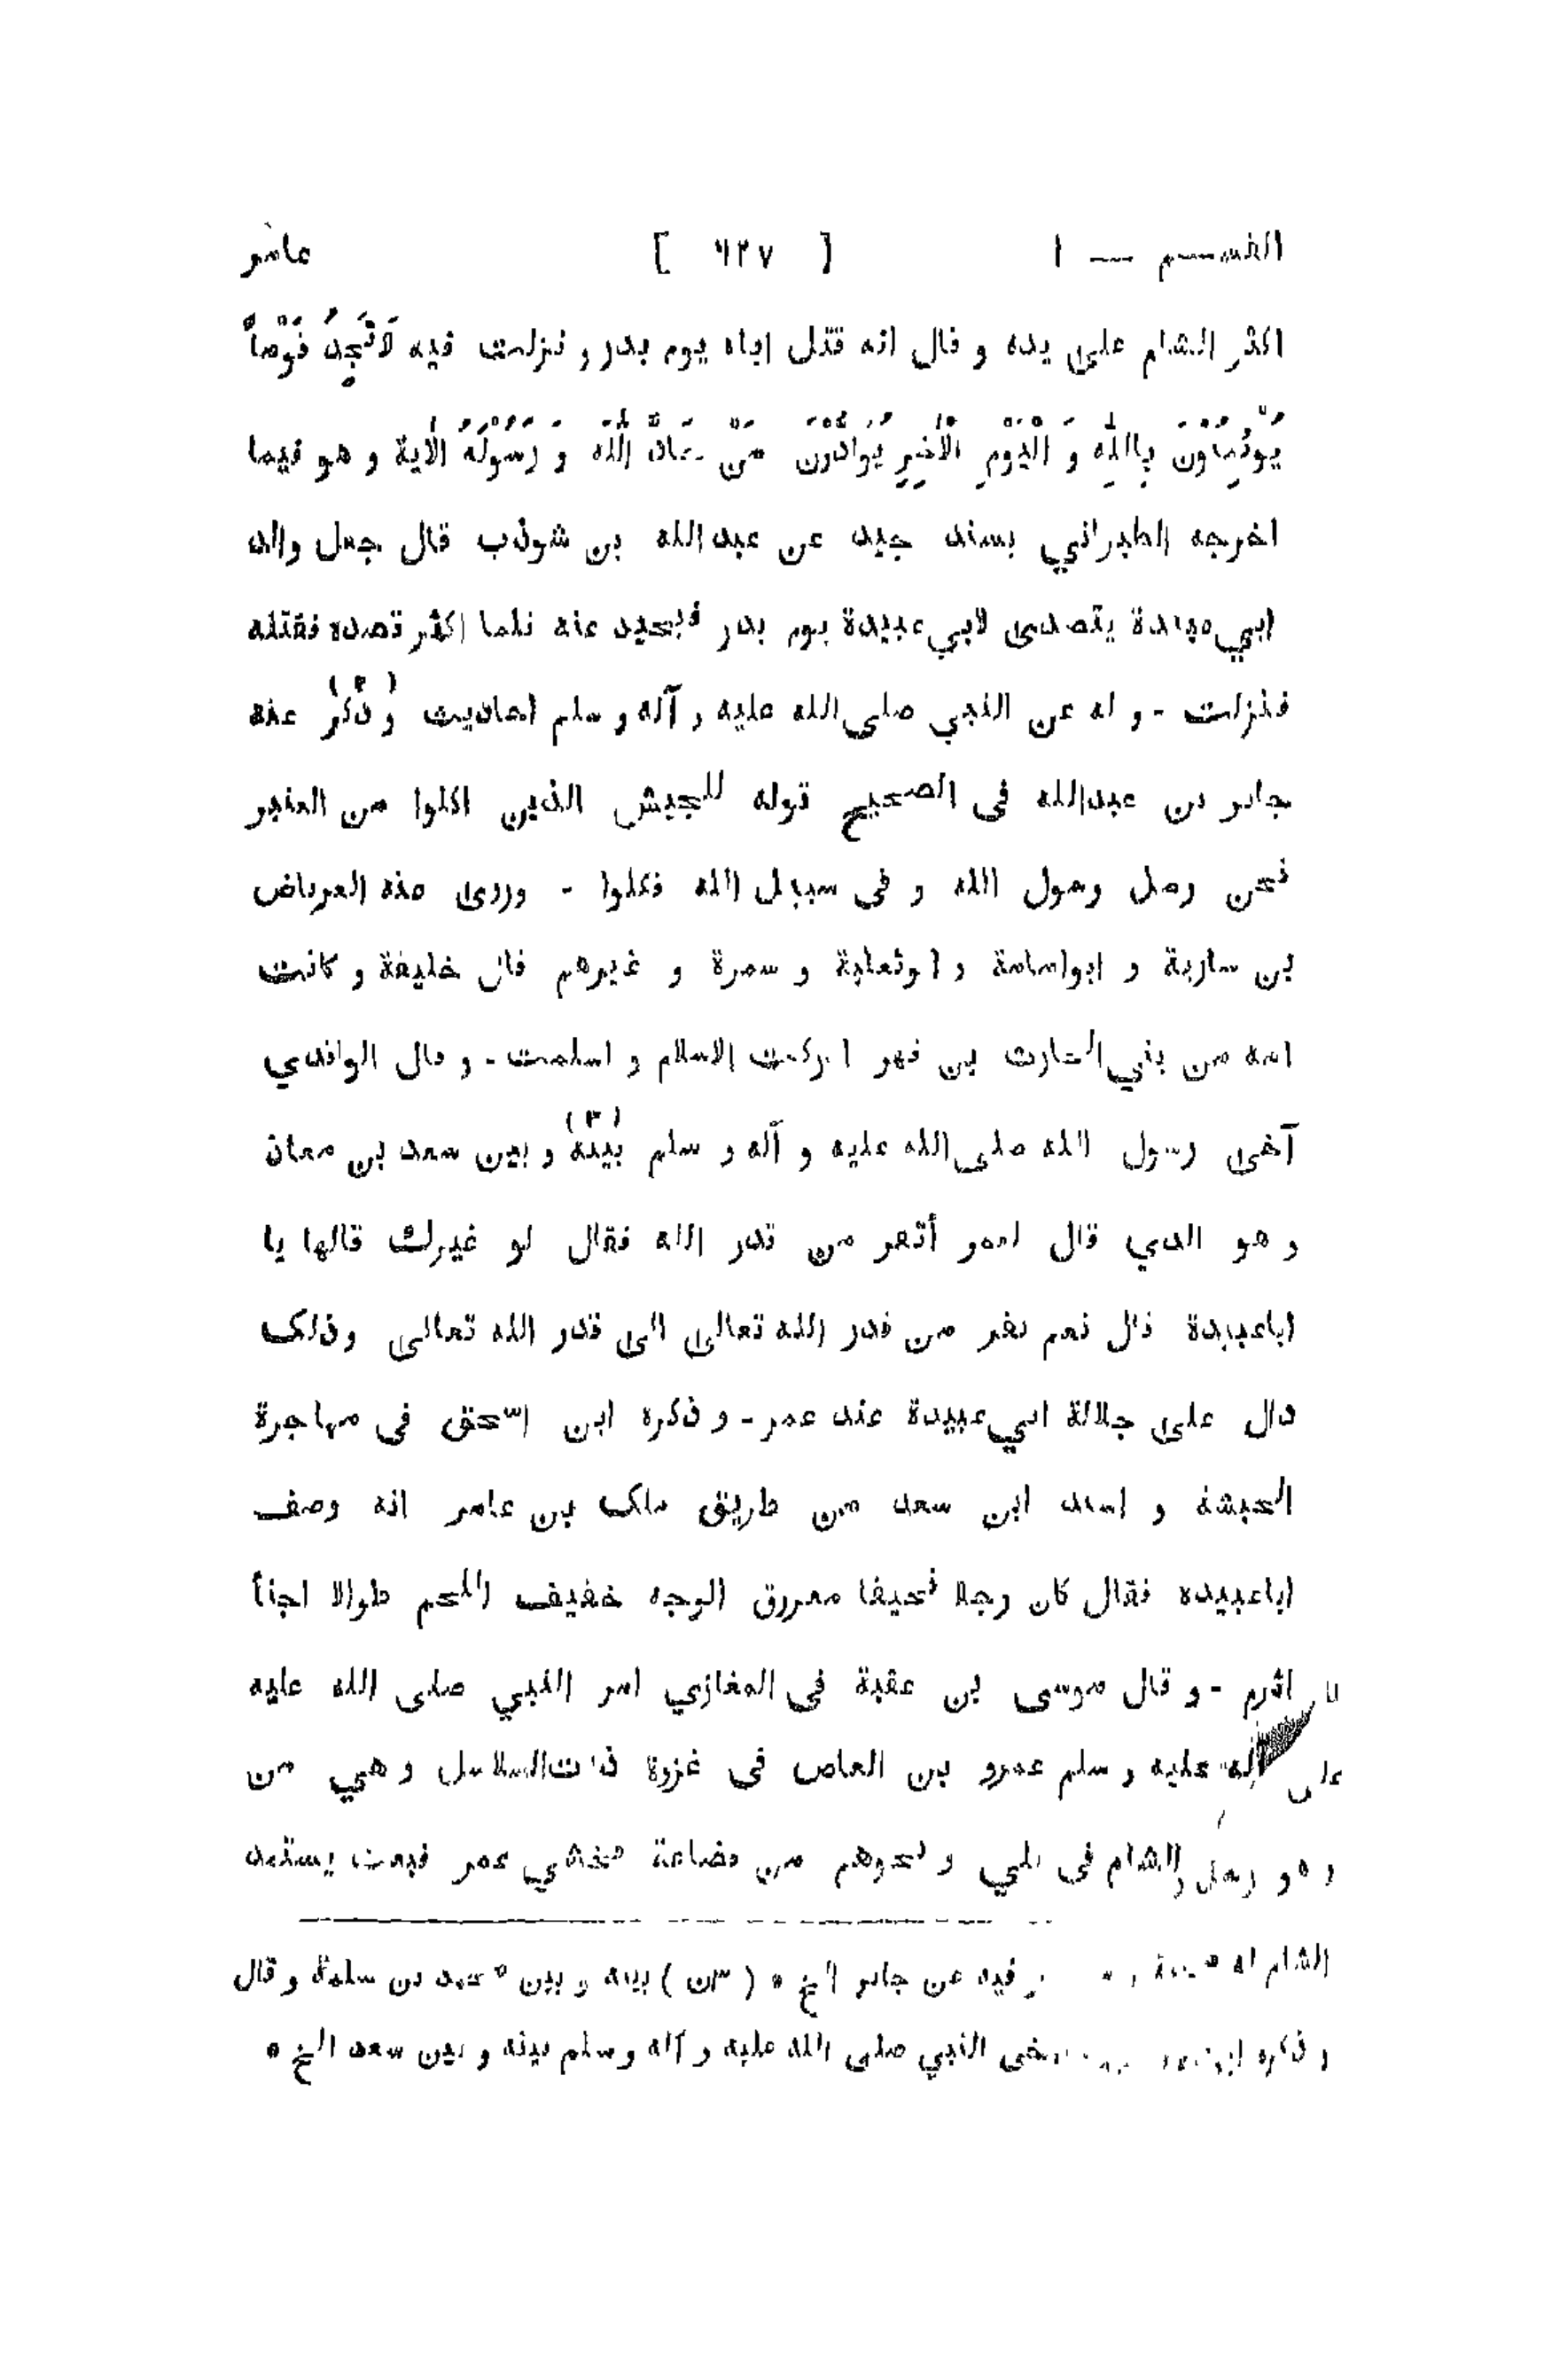 القسم — ١ [ ٦٢٧ ] عامر
اكثر الشام على يده و قال انه قتل اباه يوم بدر و نزلت فيه لَاتَجِدُ قَوْماً
يُؤْمِنُوْنَ بِاللّٰهِ وَ الْيَوْمِ الْاٰخِرِ يُوَادُّوْنَ مَنْ حَادَّ اللّٰهَ وَ رَسُوْلَهُ الآية و هو فيما
اخرجه الطبراني بسند جيد عن عبدالله بن شوذب قال جعل والد
ابي عبيدة يتصدى لابي عبيدة يوم بدر فيحيد عنه فلما اكثر قصده فقتله
فنزلت - و له عن النبي صلى الله عليه و آله و سلم احاديث (٢) و ذكر عنه
جابر بن عبدالله فى الصحيح قوله للجيش الذين اكلوا من العنبر
نحن رسل رسول الله و فى سبيل الله فكلوا - وروى عنه العرباض
بن سارية و ابوامامة و ابوثعلبة و سمرة و غيرهم قال خليفة و كانت
امه من بني الحارث بن فهر ادركت الاسلام و اسلمت - و قال الواقدي
آخى رسول الله صلى الله عليه و آله و سلم (٣) بينه و بين سعد بن معاذ
و هو الذي قال لعمر أتفر من قدر الله فقال لو غيرك قالها يا
اباعبيدة قال نعم نفر من قدر الله تعالى الى قدر الله تعالى وذلك
دال على جلالة ابي عبيدة عند عمر - و ذكره ابن اسحق فى مهاجرة
الحبشة و اسند ابن سعد من طريق ملك بن عامر انه وصف
اباعبيده فقال كان رجلا نحيفا معروق الوجه خفيف اللحم طوالا اجنأ
اثرم - و قال موسى بن عقبة فى المغازي امر النبي صلى الله عليه
على آله عليه و سلم عمرو بن العاص فى غزوة ذات السلاسل و هي من
الشام فى بلي و نحوهم من قضاعة فخشي عمر فبعث يستمد
و فيه عن جابر الخ * ( ٣ن ) بينه و بين محمد بن سلمة و قال
و ذكره النبي صلى الله عليه و آله و سلم بينه و بين سعد الخ *